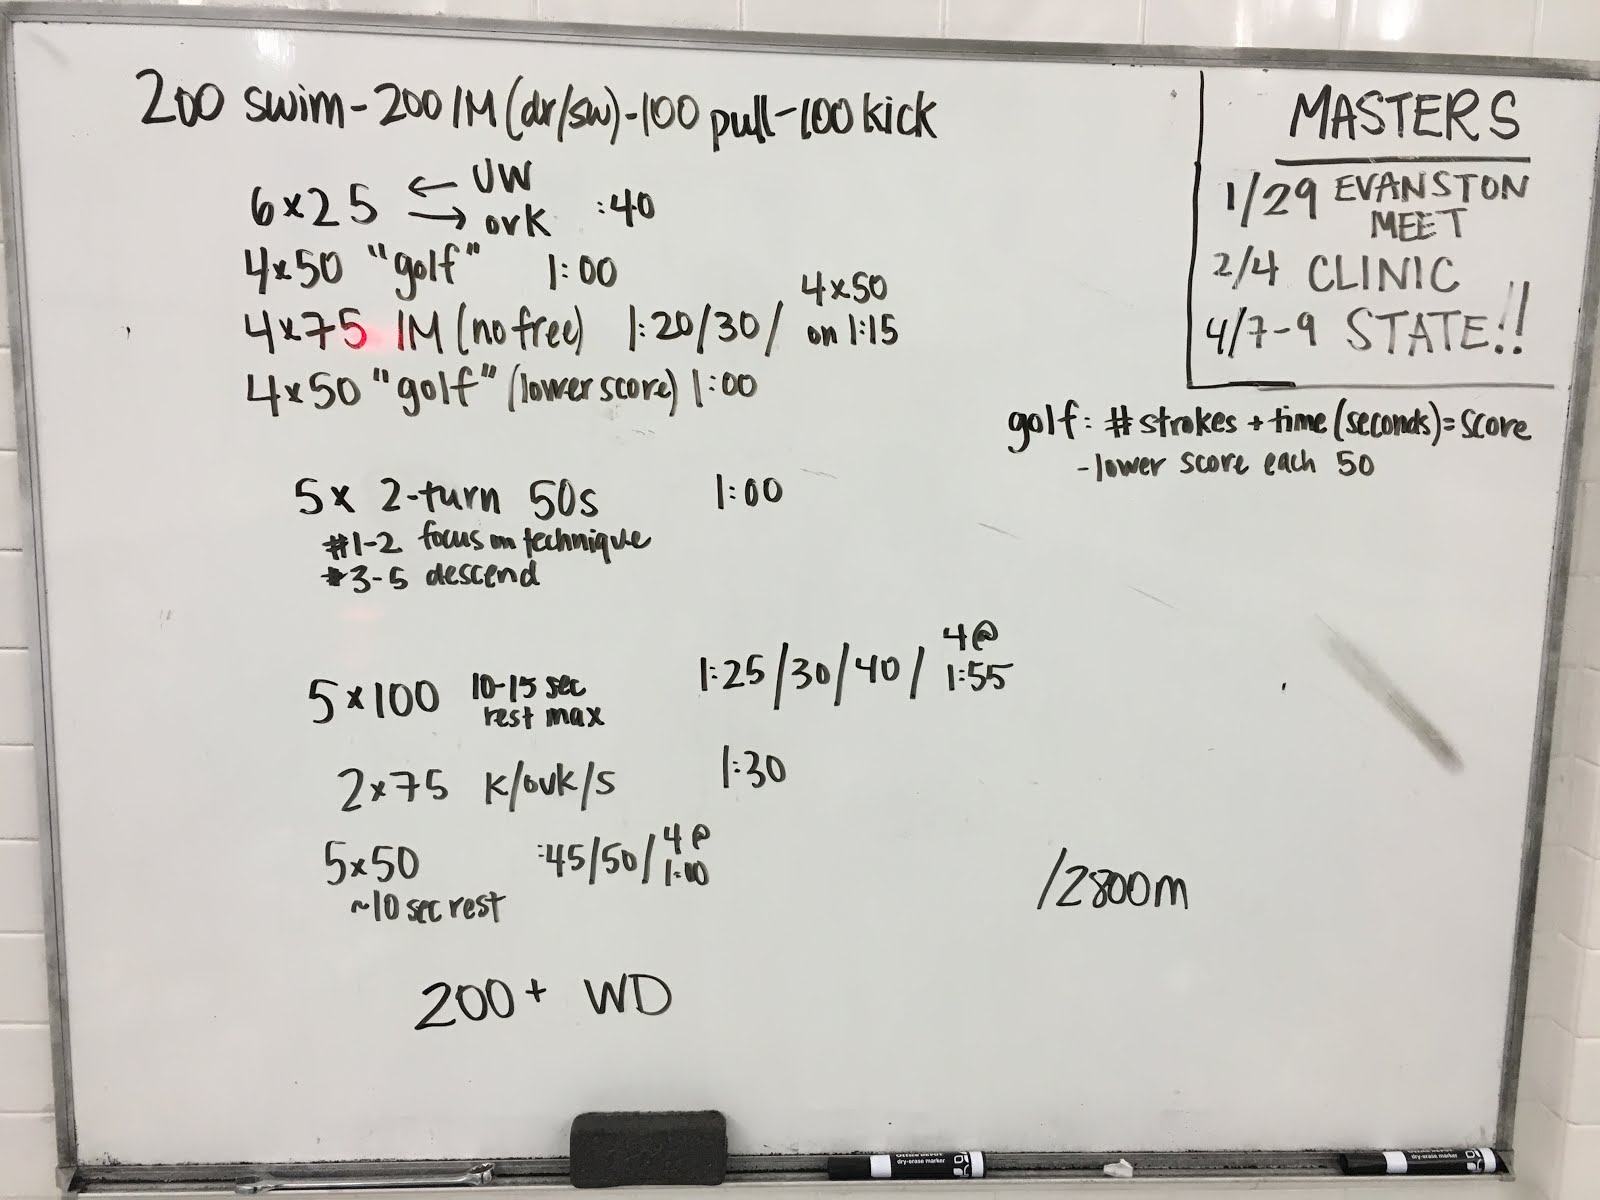 200 swim - 200 IM (dr/sw) - 100 pull - 100 kick
6x25 ← UW → ovk :40
4x50 "golf" 1:00
4x75 IM (no free) 1:20/30/ 4x50 on 1:15
4x50 "golf" (lower score) 1:00
5x 2-turn 50s 1:00
#1-2 focus on technique
#3-5 descend
5x100 10-15 sec rest max 1:25/30/40/ 4@ 1:55
2x75 K/ovk/S 1:30
5x50 :45/50/ 4@ 1:00
~10 sec rest
200+ WD
MASTERS
1/29 EVANSTON
MEET
2/4 CLINIC
4/7-9 STATE!!
golf: # strokes + time (seconds) = score
- lower score each 50
/2800m
dry-erase marker
dry-erase marker